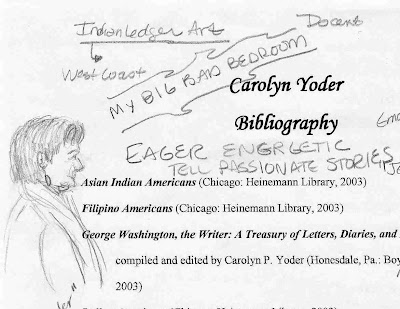 Indian Ledger Art
Docent
West Coast
MY BIG BAD BEDROOM
Carolyn Yoder
Bibliography
EAGER ENERGETIC
TELL PASSIONATE STORIES
Asian Indian Americans (Chicago: Heinemann Library, 2003)
Filipino Americans (Chicago: Heinemann Library, 2003)
George Washington, the Writer: A Treasury of Letters, Diaries, and
compiled and edited by Carolyn P. Yoder (Honesdale, Pa.: Boy
2003)